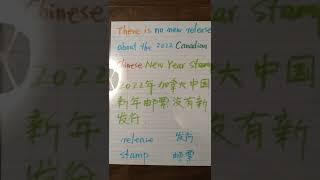 There is no new release
about the 2022 Canadian
Chinese New Year stamp
2022年加拿大中国
新年邮票没有新
发行
release 发行
stamp 邮票